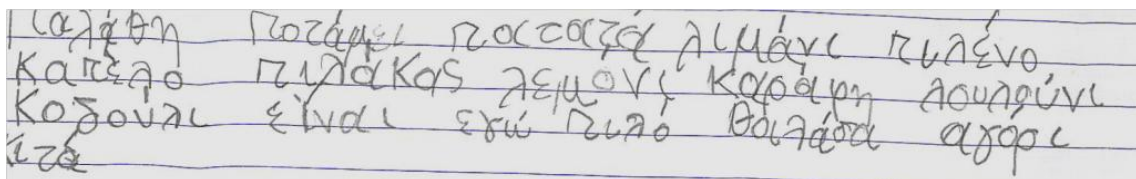 παλάθη ποτάμει παταζά λιμάνι πιλένο
καπέλο πιλάκας λεμονι καράφη λουλούνι
κοδούλι είναι εγώ πιλό θαλάσα αγόρι